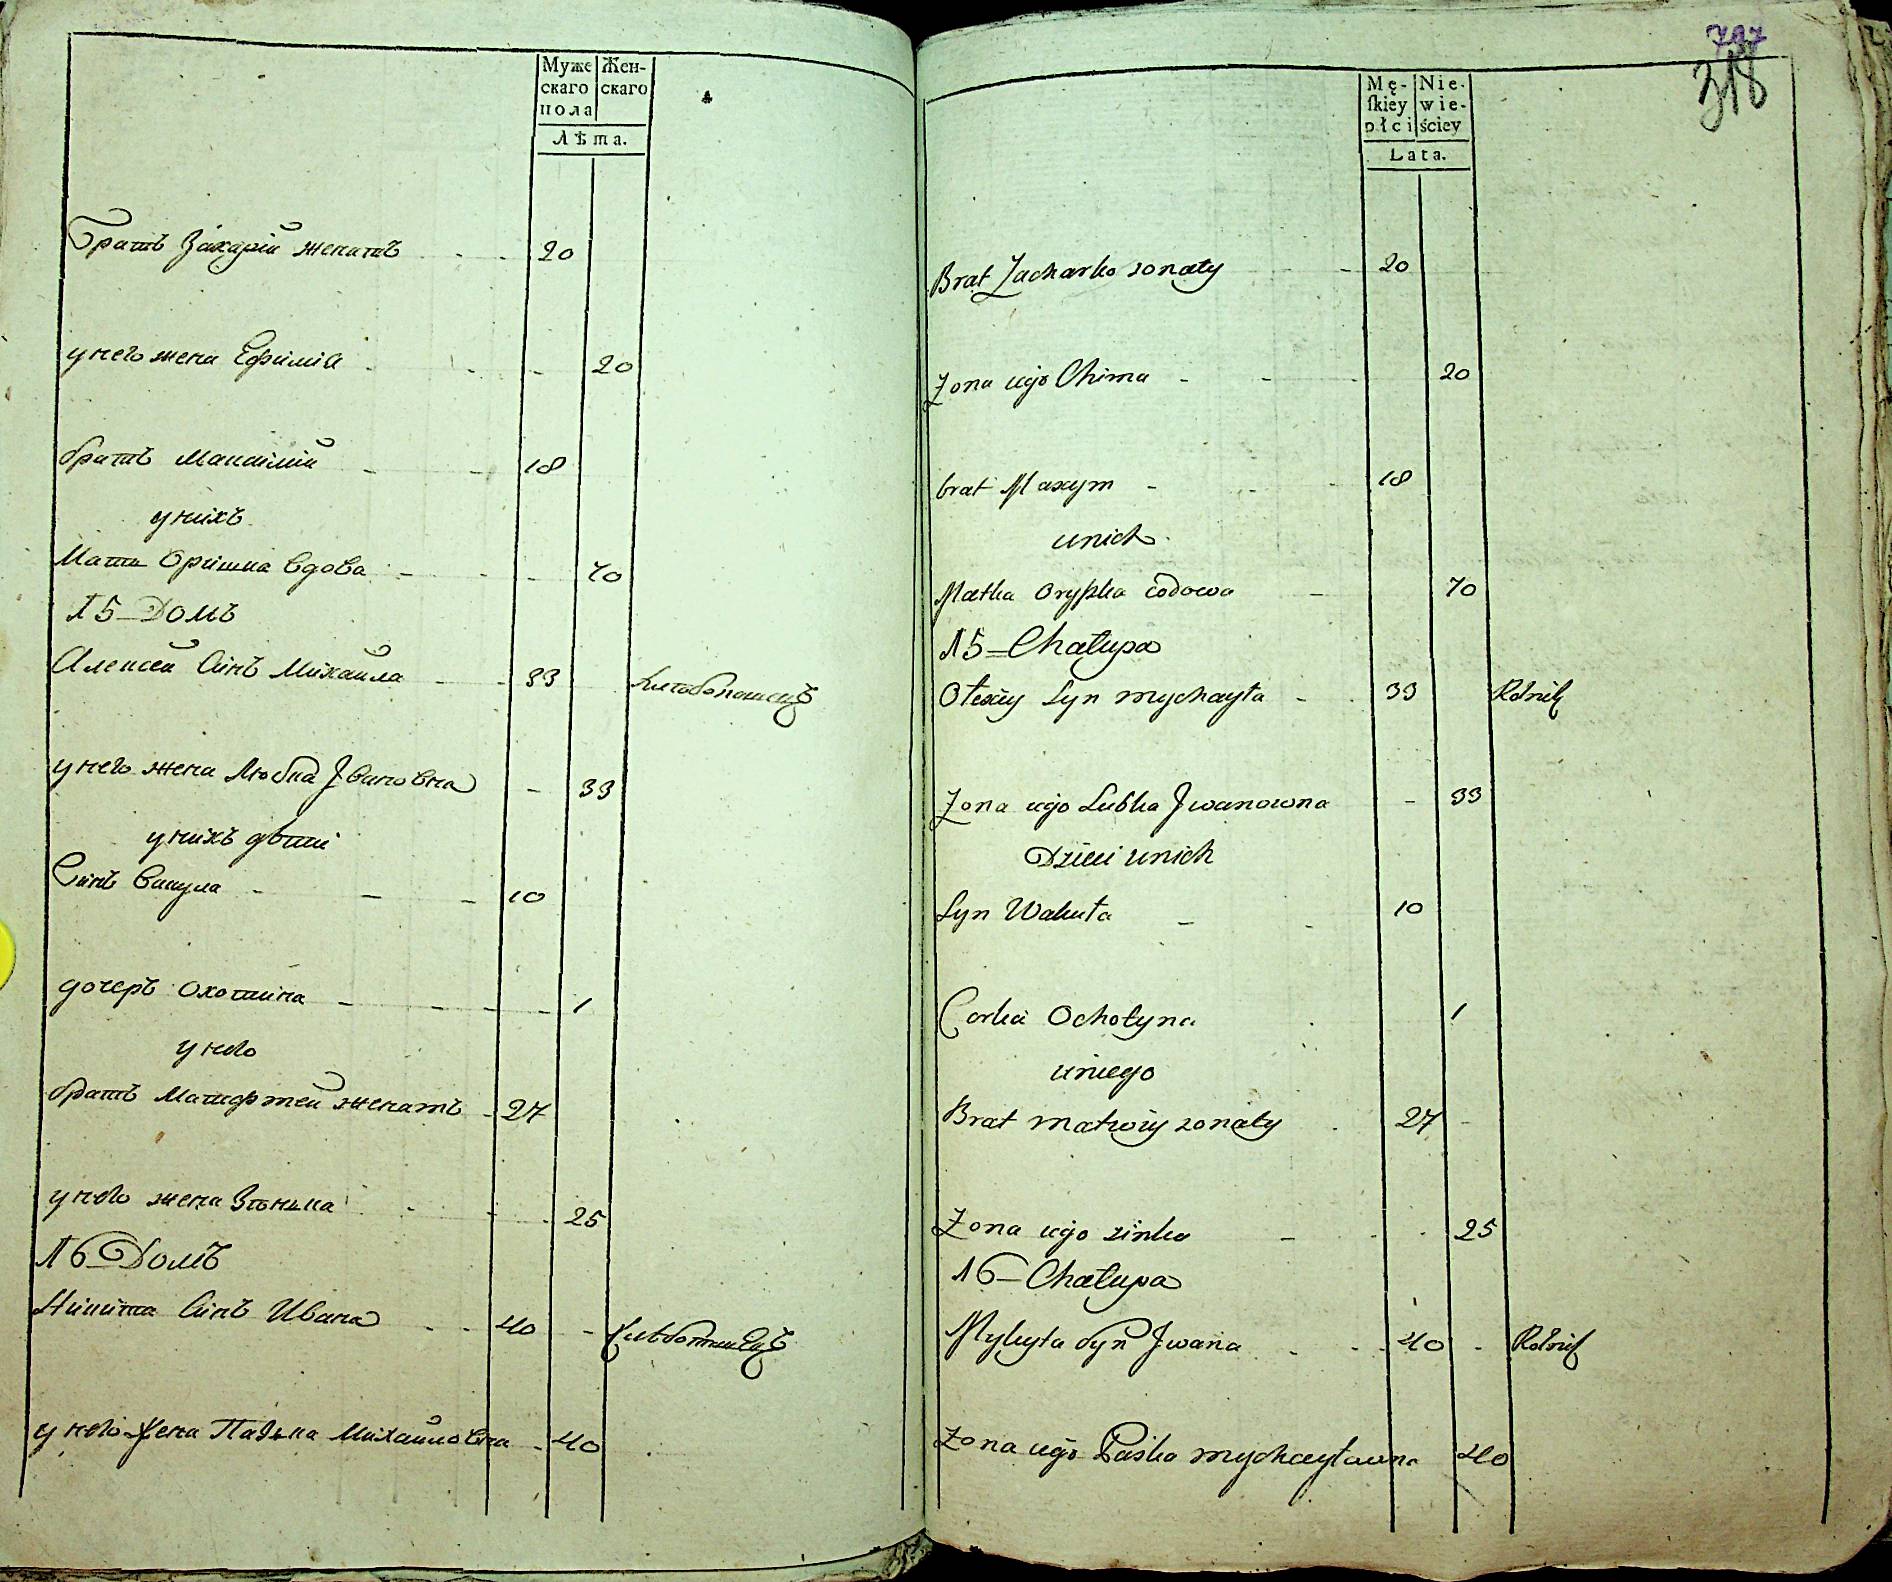 Муже Жен-
скаго скаго
пола
Лѣта.
Братъ Захарій женатъ 20
у него жена Ефимія 20
братъ Максимій 18
у нихъ
Мать Оришка вдова 70
15 Домъ
Алексей Синъ Михайла 33
у него жена Любка Ивановна 33
у нихъ дѣти
Синъ Вакула 10
дочеръ Охотина 1
у него
братъ Матфтей женатъ 27
у него жена Зѣнька 25
16 Домъ
Никита Синъ Ивана 40
у него Жена Пазька Михайловна 40
747
318
Mę- Nie-
skiey wie-
płci ściey
Lata.
Brat Zacharko zonaty 20
Zona iego Chima 20
brat Maxym 18
unich
Matka Oryszka wdowa 70
15 Chałupa
Ołexiy Syn mychayła 33 Rolnik
Zona iego Lubka Jwanowna 33
Dzieci unich
Syn Wakuła 10
Corka Ochotyna 1
uniego
Brat matwiy zonaty 27
Zona iego zinka 25
16 Chałupa
Mykyta Syn Jwana 40 Rolnik
Zona iego Paska mychayłowna 40